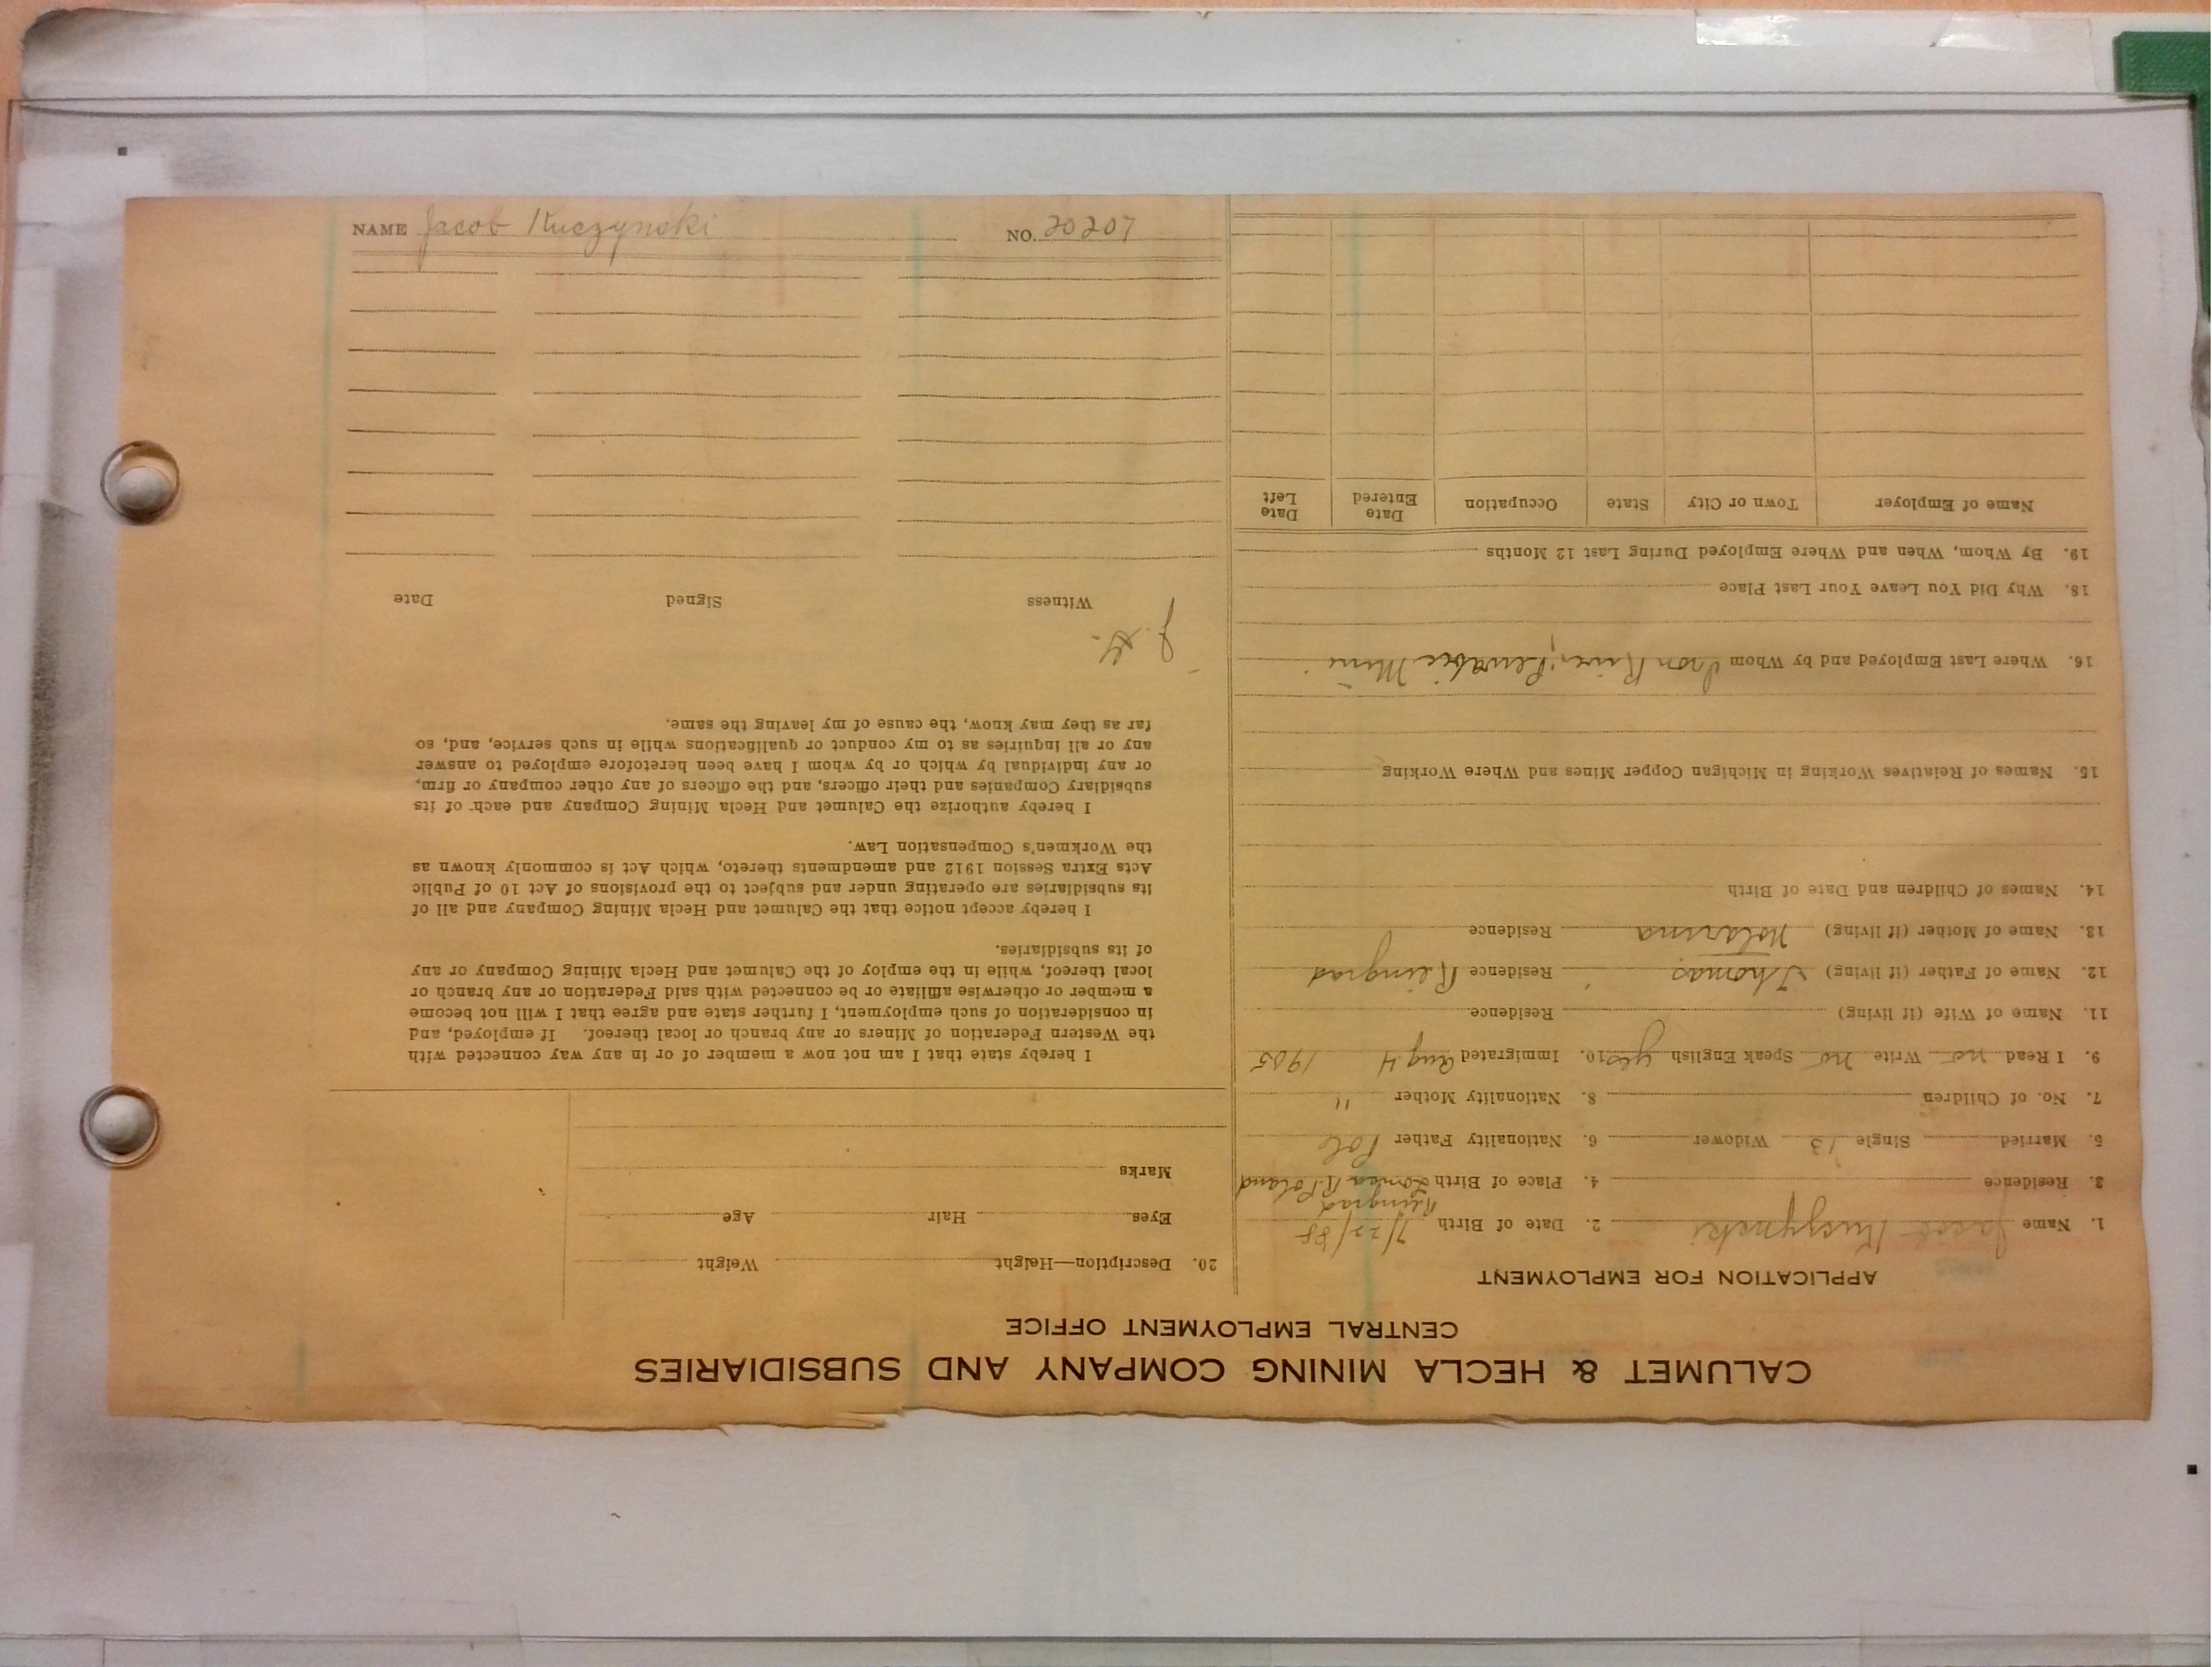 CALUMET & HECLA MINING COMPANY AND SUBSIDIARIES
CENTRAL EMPLOYMENT OFFICE
APPLICATION FOR EMPLOYMENT
1. Name Jacob Kuczynski 2. Date of Birth 7/22/85
3. Residence 4. Place of Birth R. Poland
5. Married Single 13 Widower 6. Nationality Father Pole
7. No. of Children 8. Nationality Mother "
9. I Read no Write no Speak English yes 10. Immigrated Aug 4 1905
11. Name of Wife (if living) Residence
12. Name of Father (if living) Thomas Residence
13. Name of Mother (if living) Residence
14. Names of Children and Date of Birth
15. Names of Relatives Working in Michigan Copper Mines and Where Working
16. Where Last Employed and by Whom Iron River, Mine
18. Why Did You Leave Your Last Place
19. By Whom, When and Where Employed During Last 12 Months
Name of Employer Town or City State Occupation Date Entered Date Left
20. Description—Height Weight
Eyes Hair Age
Marks
I hereby state that I am not now a member of or in any way connected with
the Western Federation of Miners or any branch or local thereof. If employed, and
in consideration of such employment, I further state and agree that I will not become
a member or otherwise affiliate or be connected with said Federation or any branch or
local thereof, while in the employ of the Calumet and Hecla Mining Company or any
of its subsidiaries.
I hereby accept notice that the Calumet and Hecla Mining Company and all of
its subsidiaries are operating under and subject to the provisions of Act 10 of Public
Acts Extra Session 1912 and amendments thereto, which Act is commonly known as
the Workmen's Compensation Law.
I hereby authorize the Calumet and Hecla Mining Company and each of its
subsidiary Companies and their officers, and the officers of any other company or firm,
or any individual by which or by whom I have been heretofore employed to answer
any or all inquiries as to my conduct or qualifications while in such service, and, so
far as they may know, the cause of my leaving the same.
Witness Signed Date
NAME Jacob Kuczynski NO. 20207